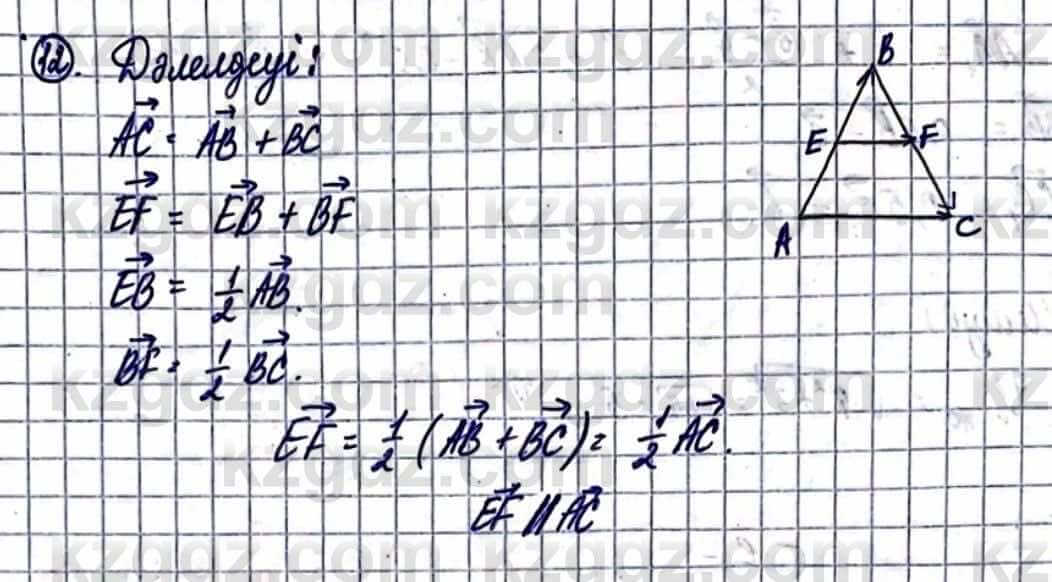 12. Дәлелдеуі:
AC⃗ = AB⃗ + BC⃗
EF⃗ = EB⃗ + BF⃗
EB⃗ = 1/2 AB⃗.
BF⃗ = 1/2 BC⃗.
EF⃗ = 1/2 (AB⃗ + BC⃗) = 1/2 AC⃗.
EF⃗ || AC⃗
B
E F
A C
kzgdz.com